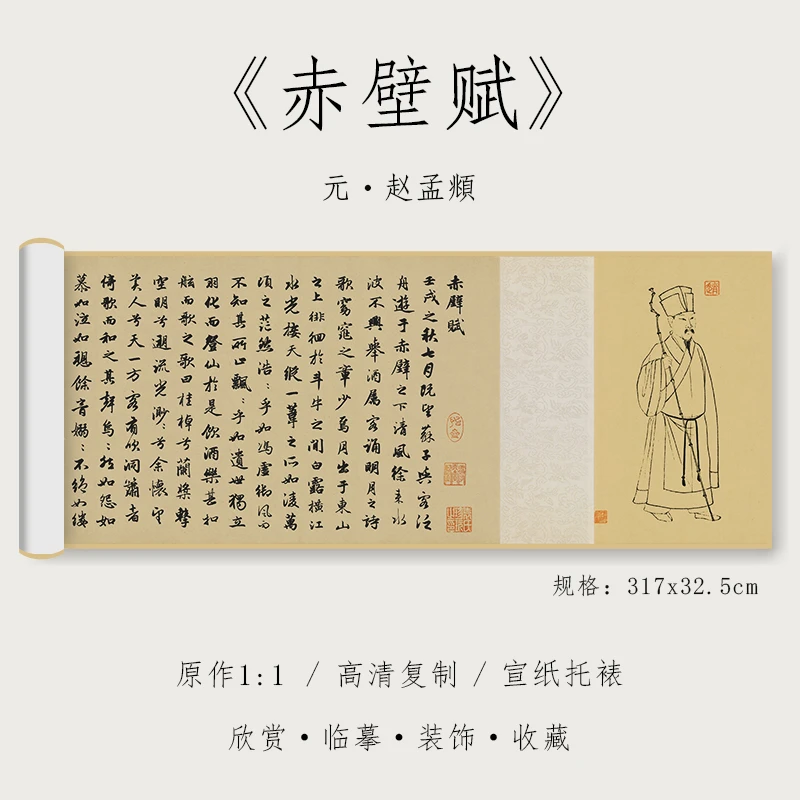 《赤壁赋》
元·赵孟頫
赤壁賦
壬戌之秋七月既望蘇子與客泛
舟遊于赤壁之下清風徐来水
波不興舉酒属客誦明月之詩
歌窈窕之章少焉月出于東山
之上徘徊於斗牛之間白露横江
水光接天縱一葦之所如凌萬
頃之茫然浩〻乎如馮虚御風而
不知其所止飄〻乎如遺世獨立
羽化而登仙於是飲酒樂甚扣
舷而歌之歌曰桂棹兮蘭槳擊
空明兮遡流光渺〻兮余懷望
美人兮天一方客有吹洞簫者
倚歌而和之其聲烏〻然如怨如
慕如泣如愬餘音嫋〻不絶如縷
规格：317x32.5cm
原作1:1 / 高清复制 / 宣纸托裱
欣赏·临摹·装饰·收藏